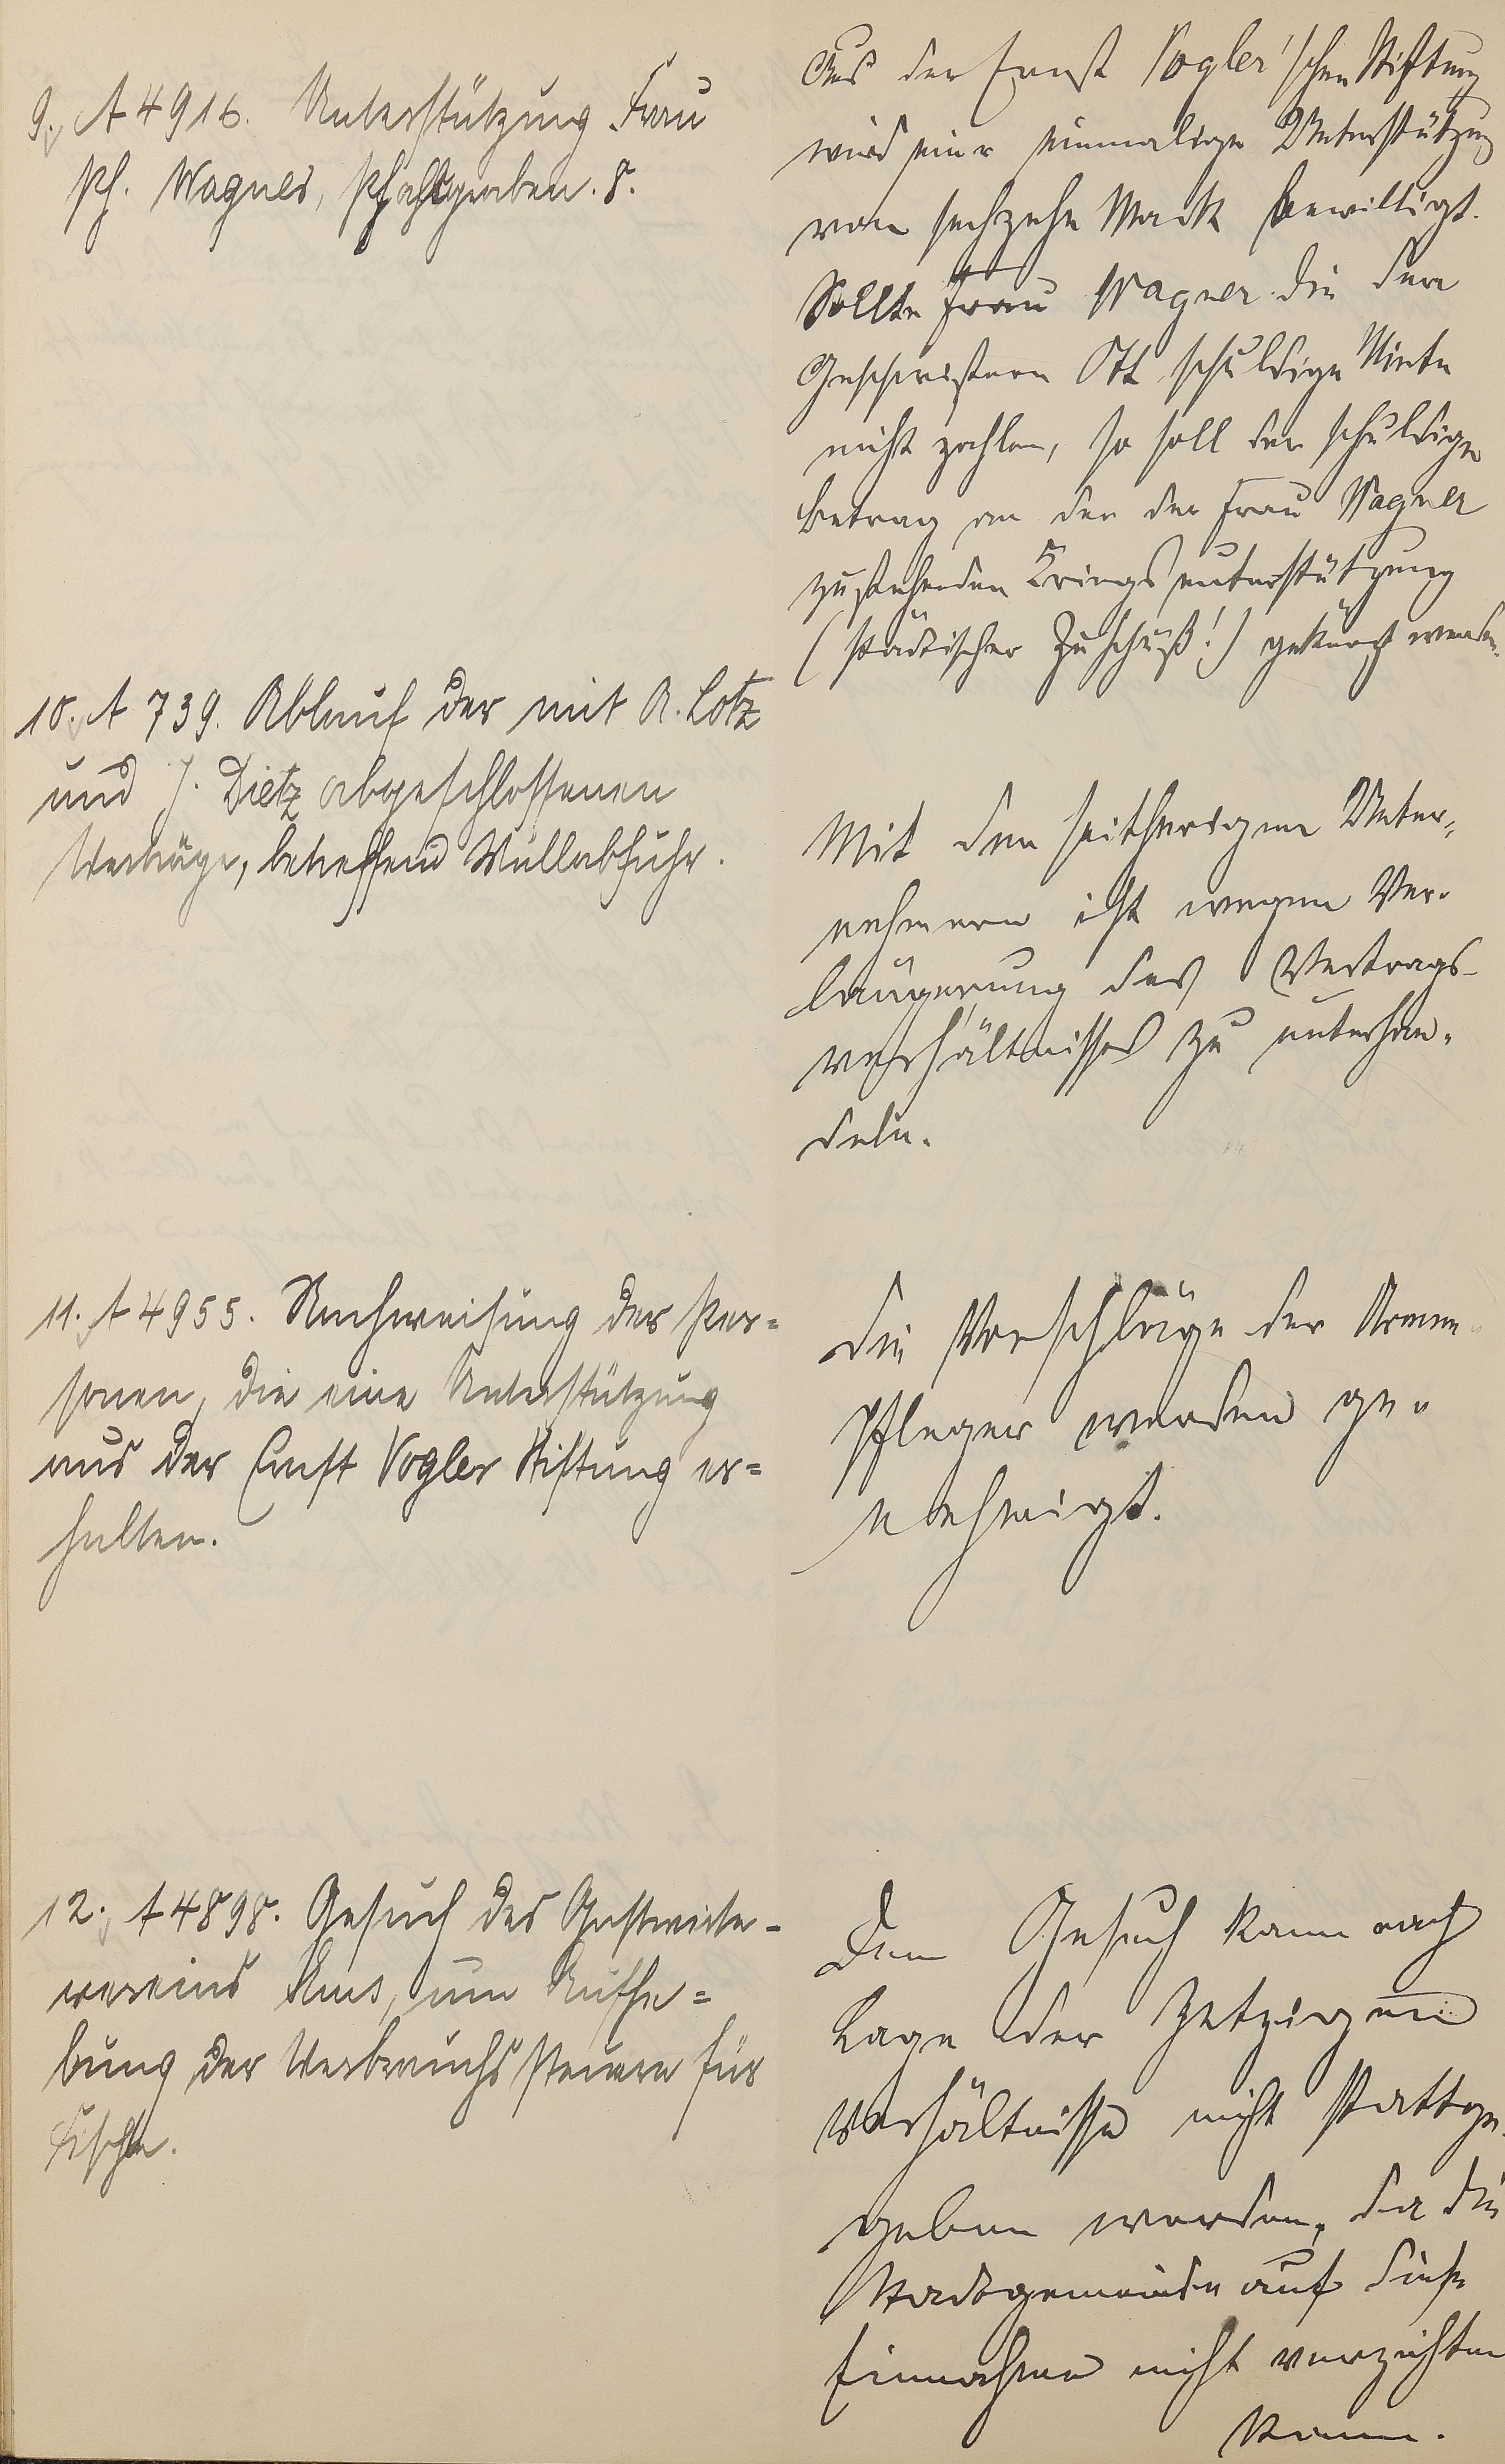 9. A 4916. Unterstützung Frau
Ph. Wagner, Pfahlgraben. 8.
Aus der Ernst Vogler'schen Stiftung
wird eine einmalige Unterstützung
von sechzehn Mark bewilligt.
Sollte Frau Wagner die den
Geschwistern Ott schuldige Miete
nicht zahlen, so soll der schuldige
Betrag an der der Frau Wagner
zustehenden Kriegsunterstützung
(städtischer Zuschuß!) gekürzt werden.
10. A 739. Ablauf der mit A. Lotz
und J. Dietz abgeschlossenen
Verträge, betreffend Müllabfuhr.
Mit den seitherigen Unter-
nehmern ist wegen Ver-
längerung des Vertrags-
verhältnisses zu unterhan-
deln.
11. A 4955. Nachweisung der Per=
sonen, die eine Unterstützung
aus der Ernst Vogler Stiftung er=
halten.
Die Vorschläge der Armen-
pfleger werden ge-
nehmigt.
12. A 4898. Gesuch des Gastwirte-
vereins Ems, um Aufhe=
bung der Verbrauchssteuern für
Fische.
Dem Gesuch kann nach
Lage der jetzigen
Verhältnisse nicht stattge-
geben werden, da die
Stadtgemeinde auf diese
Einnahme nicht verzichten
kann.